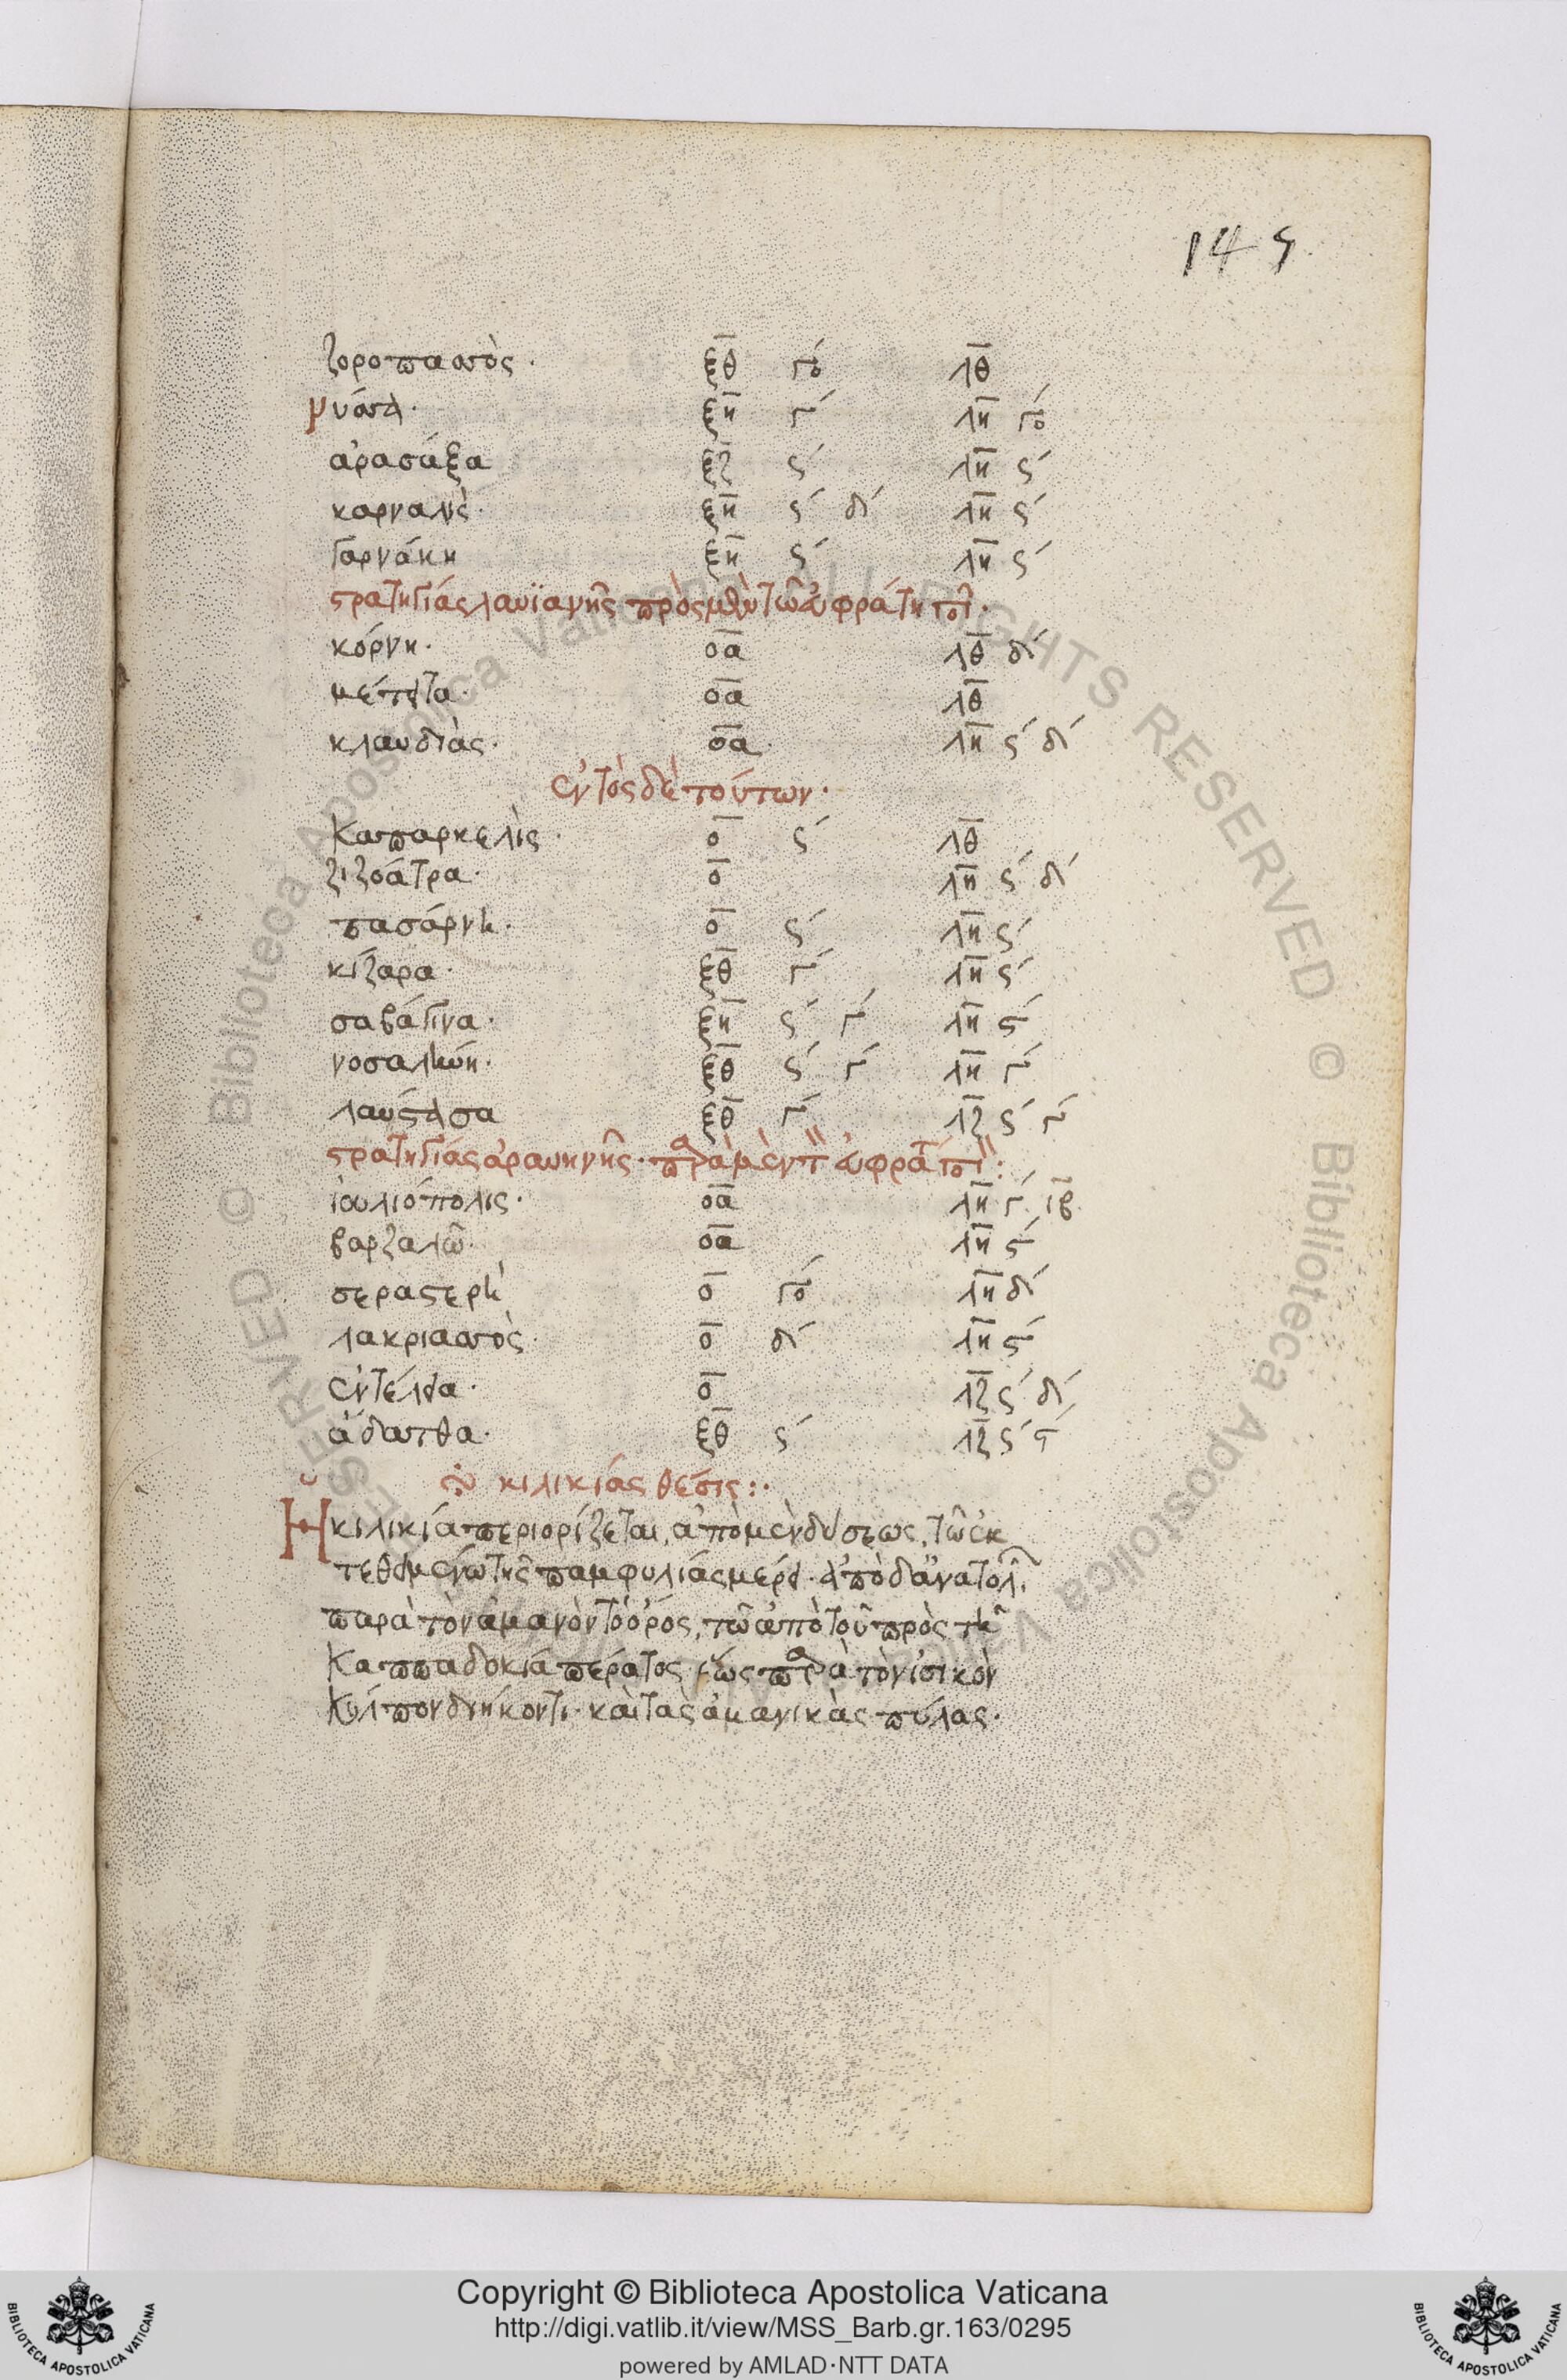 145
ζοροπασσὸς · ξθ γο λθ
Νύσσα · ξη γ´ λη γο
ἀρασάξα ξζ ς´ λη ς´
καρναλὶς · ξη ς´ δ´ λη ς´
γαρνάκη ξη ς´ λη ς´
στρατηγίας λαυϊανῆς πρὸς μὲν τῶ εὐφράτη ποτ ·
κόρνη · οα λθ δ´
μέτειτα · οα λθ
κλαυδιὰς · οα λη ς´ δ´
ἐντὸς δὲ τούτων ·
Καπαρκελὶς · ο ς´ λθ
ζιζοάτρα · ο λη ς´ δ´
πασάρνη · ο ς´ λη ς´
κίζαρα · ξθ γ´ λη ς´
σαβάγινα · ξη ς´ γ´ λη ς´
νοσαλήνη · ξθ ς´ γ´ λη γ´
λαύγασα ξθ γ´ λζ ς´ γ´
στρατηγίας ἀραυηνῆς · παρὰ μὲν τ εὐφράτ ποτ :
ἰουλιόπολις · οα λη γ´ ιβ
βαρζαλῶ · οα λη ς´
σεραστερὴ ο γο λη δ´
λακριασσὸς · ο δ´ λη ς´
ἐντέλεια · ο λζ ς´ δ´
ἄδαττθα · ξθ ς´ λζ ς´ ς´
κιλικίας θέσις :·
Ἡ κιλικία περιορίζεται, ἀπὸ μὲν δύσεως, τῶ ἐκ
τεθειμένω τῆς παμφυλίας μέρει · ἀπὸ δ ἀνατολ
παρὰ τὸν ἀμανὸν τὸ ὄρος, τῶ ἀπὸ τοῦ πρὸς τῆ
Καππαδοκία πέρατος ἕως παρὰ τὸν ἰσικὸν
κόλπον διήκοντι · καὶ τὰς ἀμανικὰς πύλας ·
Copyright © Biblioteca Apostolica Vaticana
http://digi.vatlib.it/view/MSS_Barb.gr.163/0295
powered by AMLAD·NTT DATA